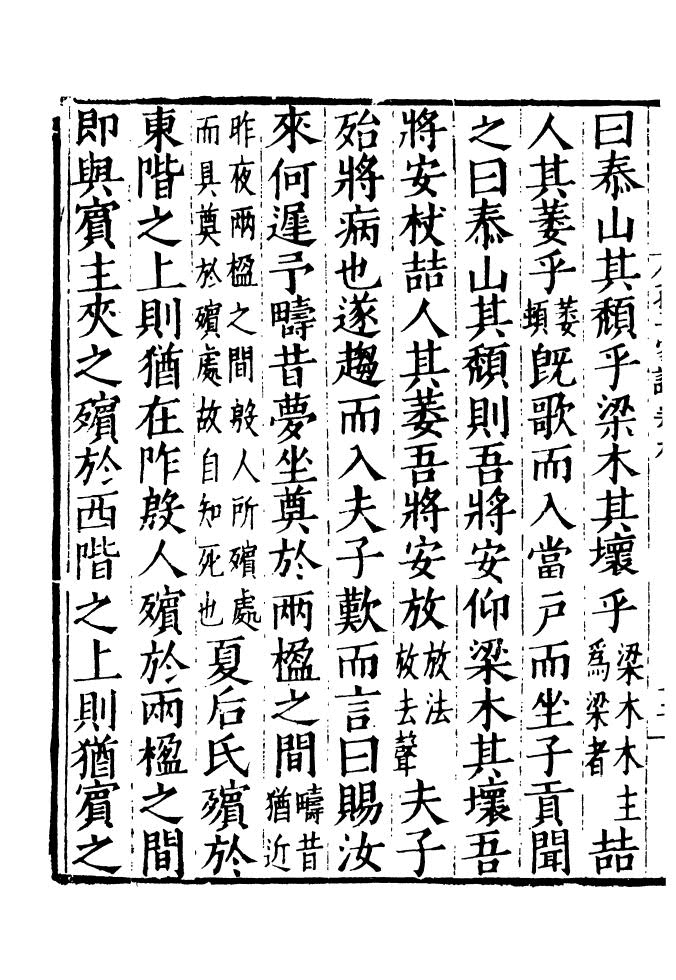 曰泰山其頹乎梁木其壞乎梁木木主為梁者喆
人其萎乎萎頓既歌而入當戶而坐子貢聞
之曰泰山其頹則吾將安仰梁木其壞吾
將安杖喆人其萎吾將安放放法放去聲夫子
殆將病也遂趨而入夫子歎而言曰賜汝
來何遲予疇昔夢坐奠於兩楹之間疇昔猶近
昨夜兩楹之間殷人所殯處而具奠於殯處故自知死也夏后氏殯於
東階之上則猶在阼殷人殯於兩楹之間
即與賓主夾之殯於西階之上則猶賓之